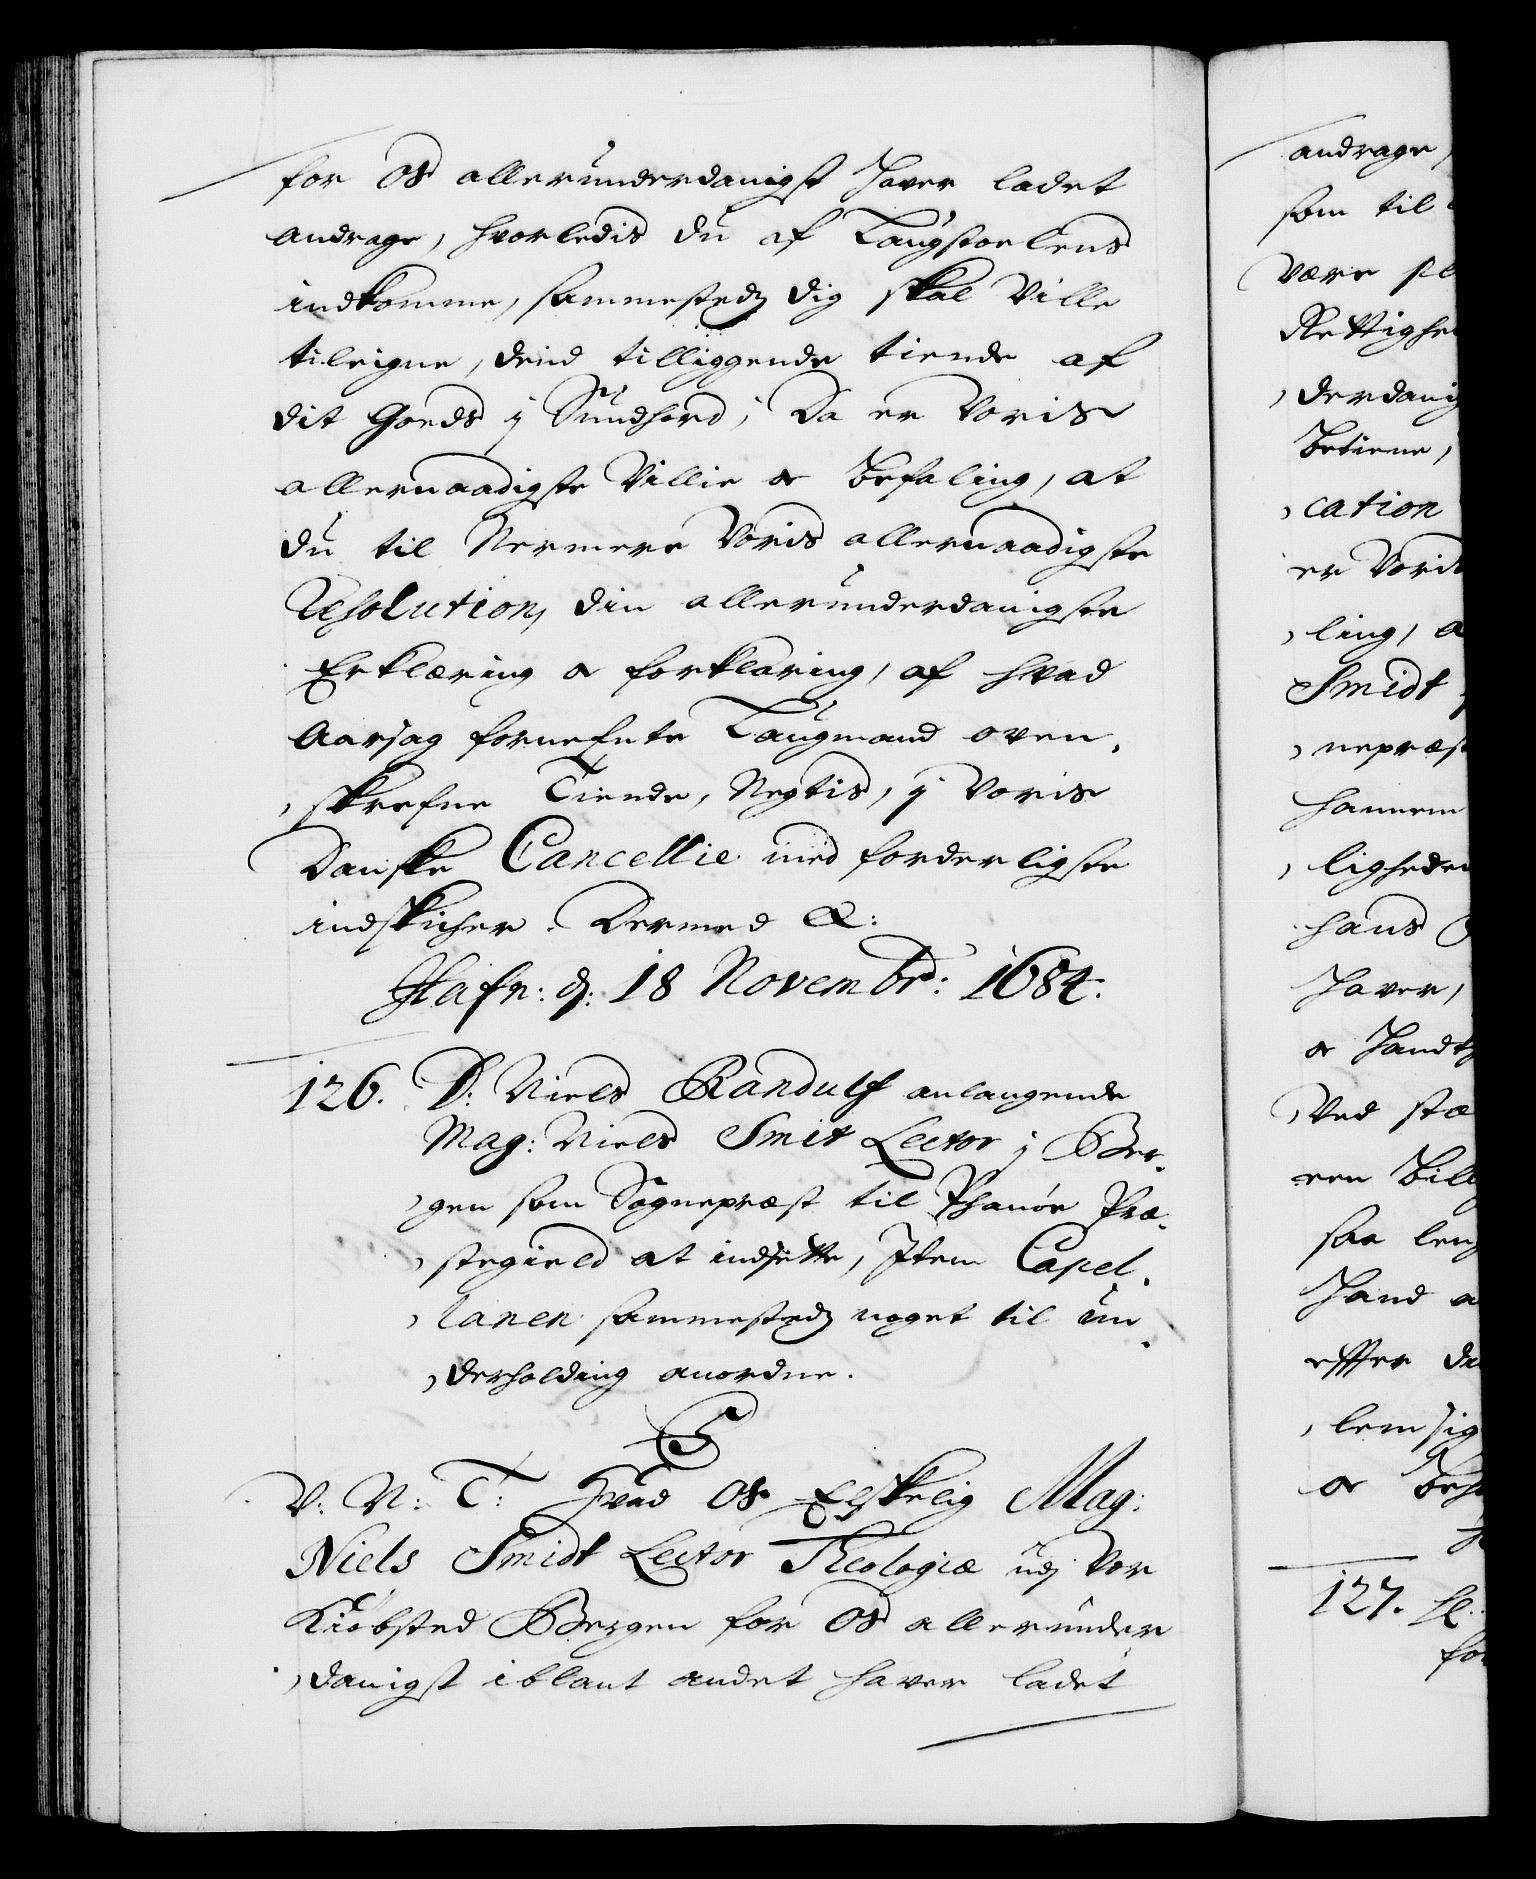 for Os allerunderdanigst hafver ladet
andrage, hvorledis du af Laugstoelens
indkomme, sammesteds dig skal ville
tileigne, deind tilliggende tiende af
dit Goeds i Sundhord; Da er Voris
allernaadigste Villie oc Befaling, at
du til Nermere Voris allernaadigste
Resolution, din allerunderdanigste
Erklæring oc forklaring, af hvad
Aarsag fornefnte Laugmand oven,
,skrefne Tiende, Negtis, i Voris
Danske Cancellie med forderligste
indskicher. Dermed &:
Hafn: d: 18 Novembr: 1684.
126. D: Niels Randulf anlangende
Mag: Niels Smit Lector i Ber,
,gen som Sognepræst til Phanøe Præ,
,stegield at indsette, Item Capel,
,lanen sammesteds noget til un,
,derholding anordne.
C5
V. N: T: Hvad Os Elskelig Mag:
Niels Smidt Lector Theologiæ udj Vor
Kiøbsted Bergen for Os allerunder
,danigst iblant andet hafver ladet
andrage,
som til
være
Rettighe
,derdanig
betiene,
,cation
er Voris
,ling, a
Smidt
,nepræst
hannem
,ligheder
hans
hafver,
oc
Ved
een Bill
saa leng
Hand a
efter de
,lem sig
oc
127.
for